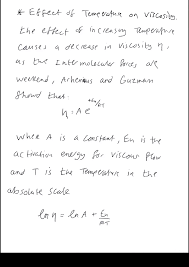 * Effect of Temperature on Viscosity.
the effect of increasing Temperature
Causes a decrease in Viscosity η,
as the Intermolecular forces are
weekend, Arhenius and Guzman
Showed that
η = A e^(En/RT)
where A is a constant, En is the
activation energy for Viscous flow
and T is the Temperature in the
absolute scale
ln η = ln A + En/RT